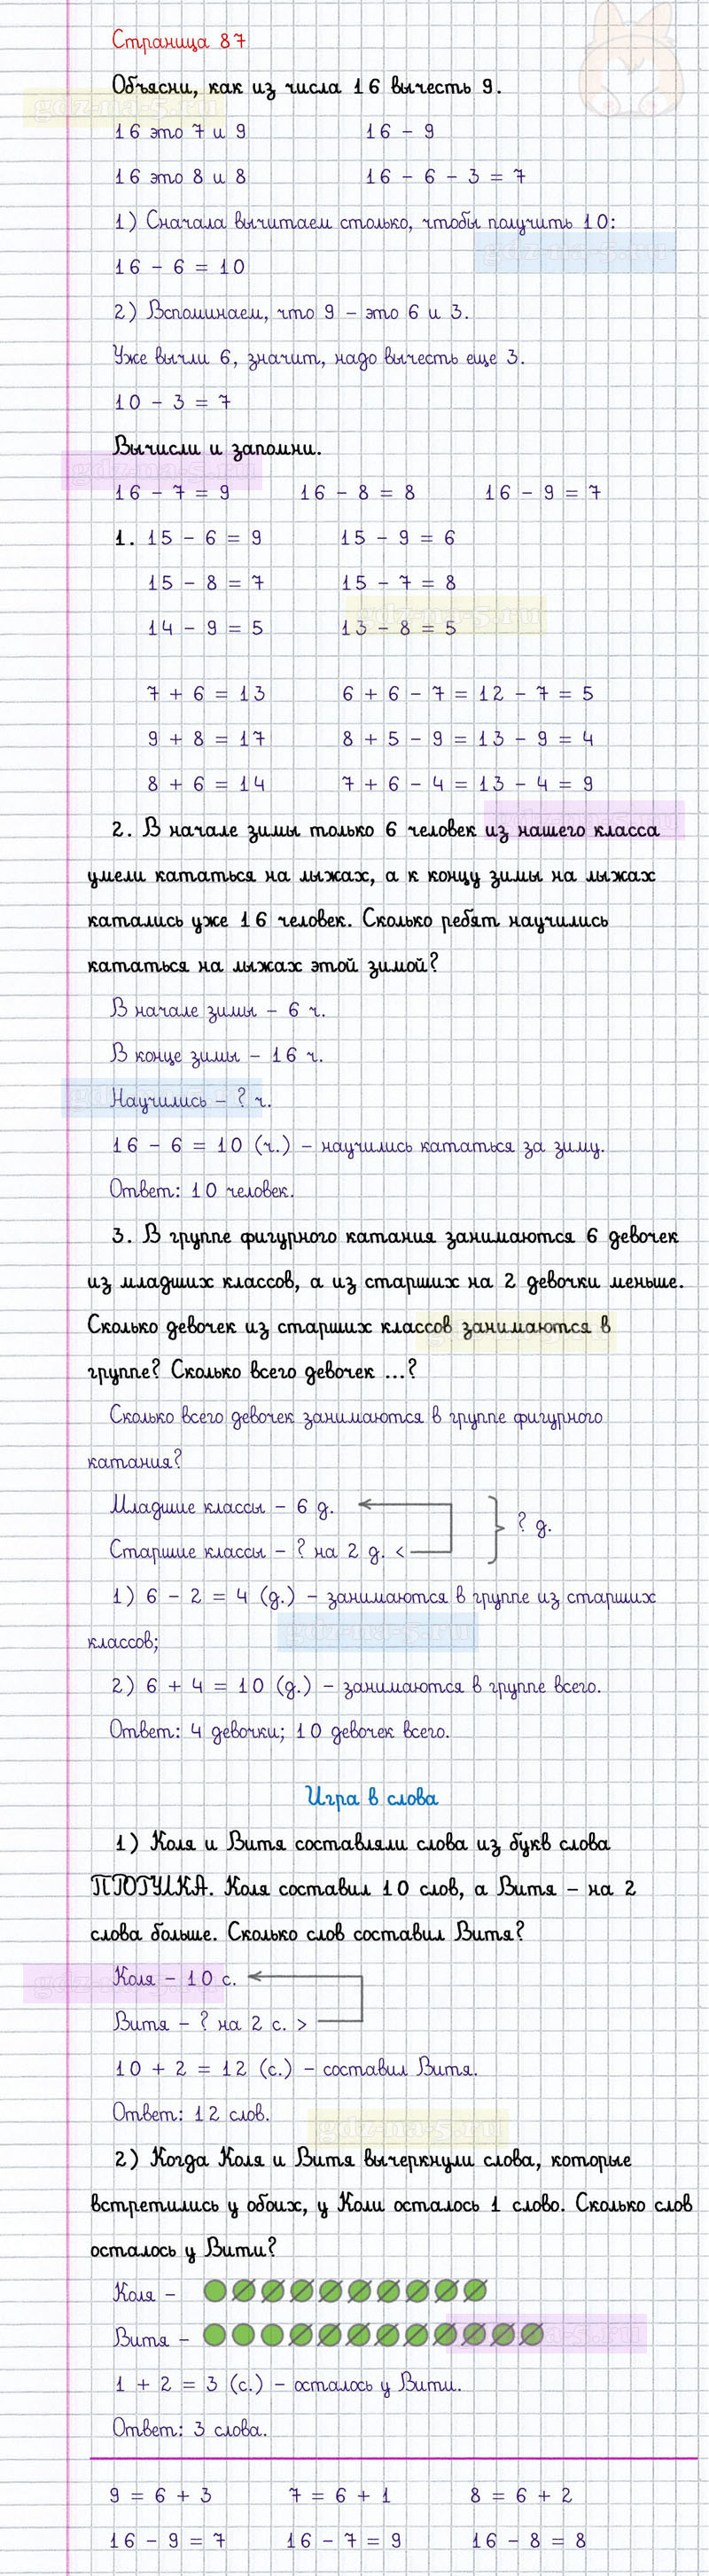 Страница 87
Объясни, как из числа 16 вычесть 9.
gdz-na-5.ru
16 это 7 и 9 16 - 9
16 это 8 и 8 16 - 6 - 3 = 7
1) Сначала вычитаем столько, чтобы получить 10:
gdz-na-5.ru
16 - 6 = 10
2) Вспоминаем, что 9 - это 6 и 3.
Уже вычли 6, значит, надо вычесть еще 3.
10 - 3 = 7
Вычисли и запомни.
gdz-na-5.ru
16 - 7 = 9 16 - 8 = 8 16 - 9 = 7
1. 15 - 6 = 9 15 - 9 = 6
15 - 8 = 7 15 - 7 = 8
gdz-na-5.ru
14 - 9 = 5 13 - 8 = 5
7 + 6 = 13 6 + 6 - 7 = 12 - 7 = 5
9 + 8 = 17 8 + 5 - 9 = 13 - 9 = 4
8 + 6 = 14 7 + 6 - 4 = 13 - 4 = 9
gdz-na-5.ru
2. В начале зимы только 6 человек из нашего класса
умели кататься на лыжах, а к концу зимы на лыжах
катались уже 16 человек. Сколько ребят научились
кататься на лыжах этой зимой?
В начале зимы - 6 ч.
В конце зимы - 16 ч.
gdz-na-5.ru
Научились - ? ч.
16 - 6 = 10 (ч.) - научились кататься за зиму.
Ответ: 10 человек.
3. В группе фигурного катания занимаются 6 девочек
из младших классов, а из старших на 2 девочки меньше.
Сколько девочек из старших классов занимаются в
gdz-na-5.ru
группе? Сколько всего девочек ...?
Сколько всего девочек занимаются в группе фигурного
катания?
Младшие классы - 6 д.
? д.
Старшие классы - ? на 2 д. <
1) 6 - 2 = 4 (д.) - занимаются в группе из старших
классов;
gdz-na-5.ru
2) 6 + 4 = 10 (д.) - занимаются в группе всего.
Ответ: 4 девочки; 10 девочек всего.
Игра в слова
1) Коля и Витя составляли слова из букв слова
Коля составил 10 слов, а Витя - на 2
слова больше. Сколько слов составил Витя?
gdz-na-5.ru
Коля - 10 с.
Витя - ? на 2 с. >
10 + 2 = 12 (с.) - составил Витя.
Ответ: 12 слов.
gdz-na-5.ru
2) Когда Коля и Витя вычеркнули слова, которые
встретились у обоих, у Коли осталось 1 слово. Сколько слов
осталось у Вити?
Коля -
Витя -
gdz-na-5.ru
1 + 2 = 3 (с.) - осталось у Вити.
Ответ: 3 слова.
9 = 6 + 3 7 = 6 + 1 8 = 6 + 2
16 - 9 = 7 16 - 7 = 9 16 - 8 = 8